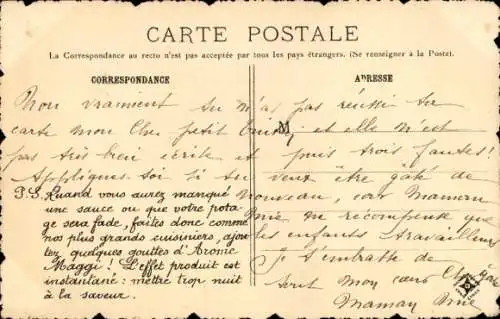 CARTE POSTALE
La Correspondance au recto n'est pas acceptée par tous les pays étrangers. (Se renseigner à la Poste).
CORRESPONDANCE
ADRESSE
Non vraiment tu m'as pas réussi ta
carte mon Cher petit et elle n'est
pas très bien écrite et puis trois fautes!
Appliques toi si tu veux être gâté de
nouveau, car Maman
ne récompense que
les enfants travailleurs
Je t'embrasse de
tout mon cœur
Maman
M
P.S. Quand vous aurez manqué
une sauce ou que votre pota-
ge sera fade, faites donc comme
nos plus grands cuisiniers, ajou-
tez quelques gouttes d'Arome
Maggi! L'effet produit est
instantané: mettre trop nuit
à la saveur.